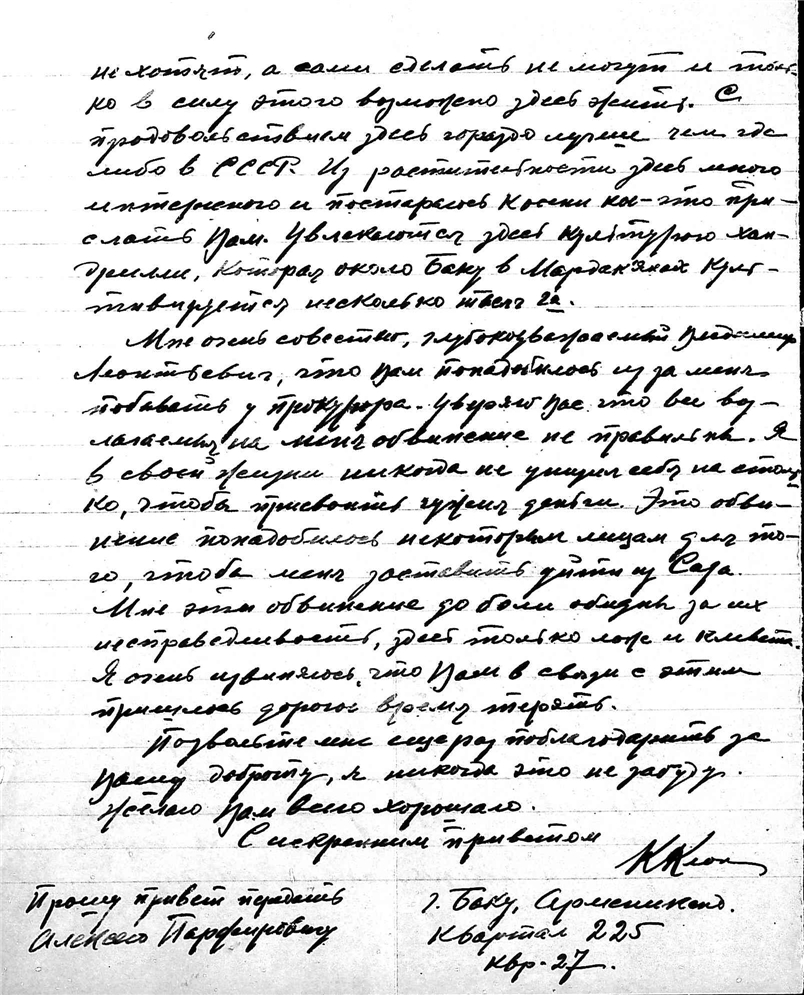 не хотят, а сами сделать не могут и толь-
ко в силу этого возможно здесь жить. С
продовольствием здесь гораздо лучше чем где
либо в СССР. Из растительности здесь много
интересного и постараюсь к осени кое-что при-
слать Вам. Увлекаются здесь культурою хан-
дриллы, которая около Баку в Мардакянах куль-
тивируется несколько тысяч га.
Мне очень совестно, глубокоуважаемый Владимир
Леонтьевич, что Вам понадобилось из за меня
побывать у прокурора. Уверяю Вас что все воз-
лагаемыя на меня обвинение не правильны. Я
в своей жизни никогда не унизил себя на столь-
ко, чтобы присвоить чужия деньги. Это обви-
нение понадобилось некоторым лицам для то-
го, чтобы меня заставить уйти из Сада.
Мне эти обвинение до боли обидны за их
несправедливость, здесь только лож и клевета.
Я очень извиняюсь, что Вам в связи с этим
пришлось дорогое время терять.
Позвольте мне еще раз поблагодарить за
Вашу доброту, я никогда это не забуду.
Желаю Вам всего хорошаго.
С искренним приветом
Прошу привет передать
Алексею Парфировичу
г. Баку, Арменикенд.
Квартал 225
квр. 27.